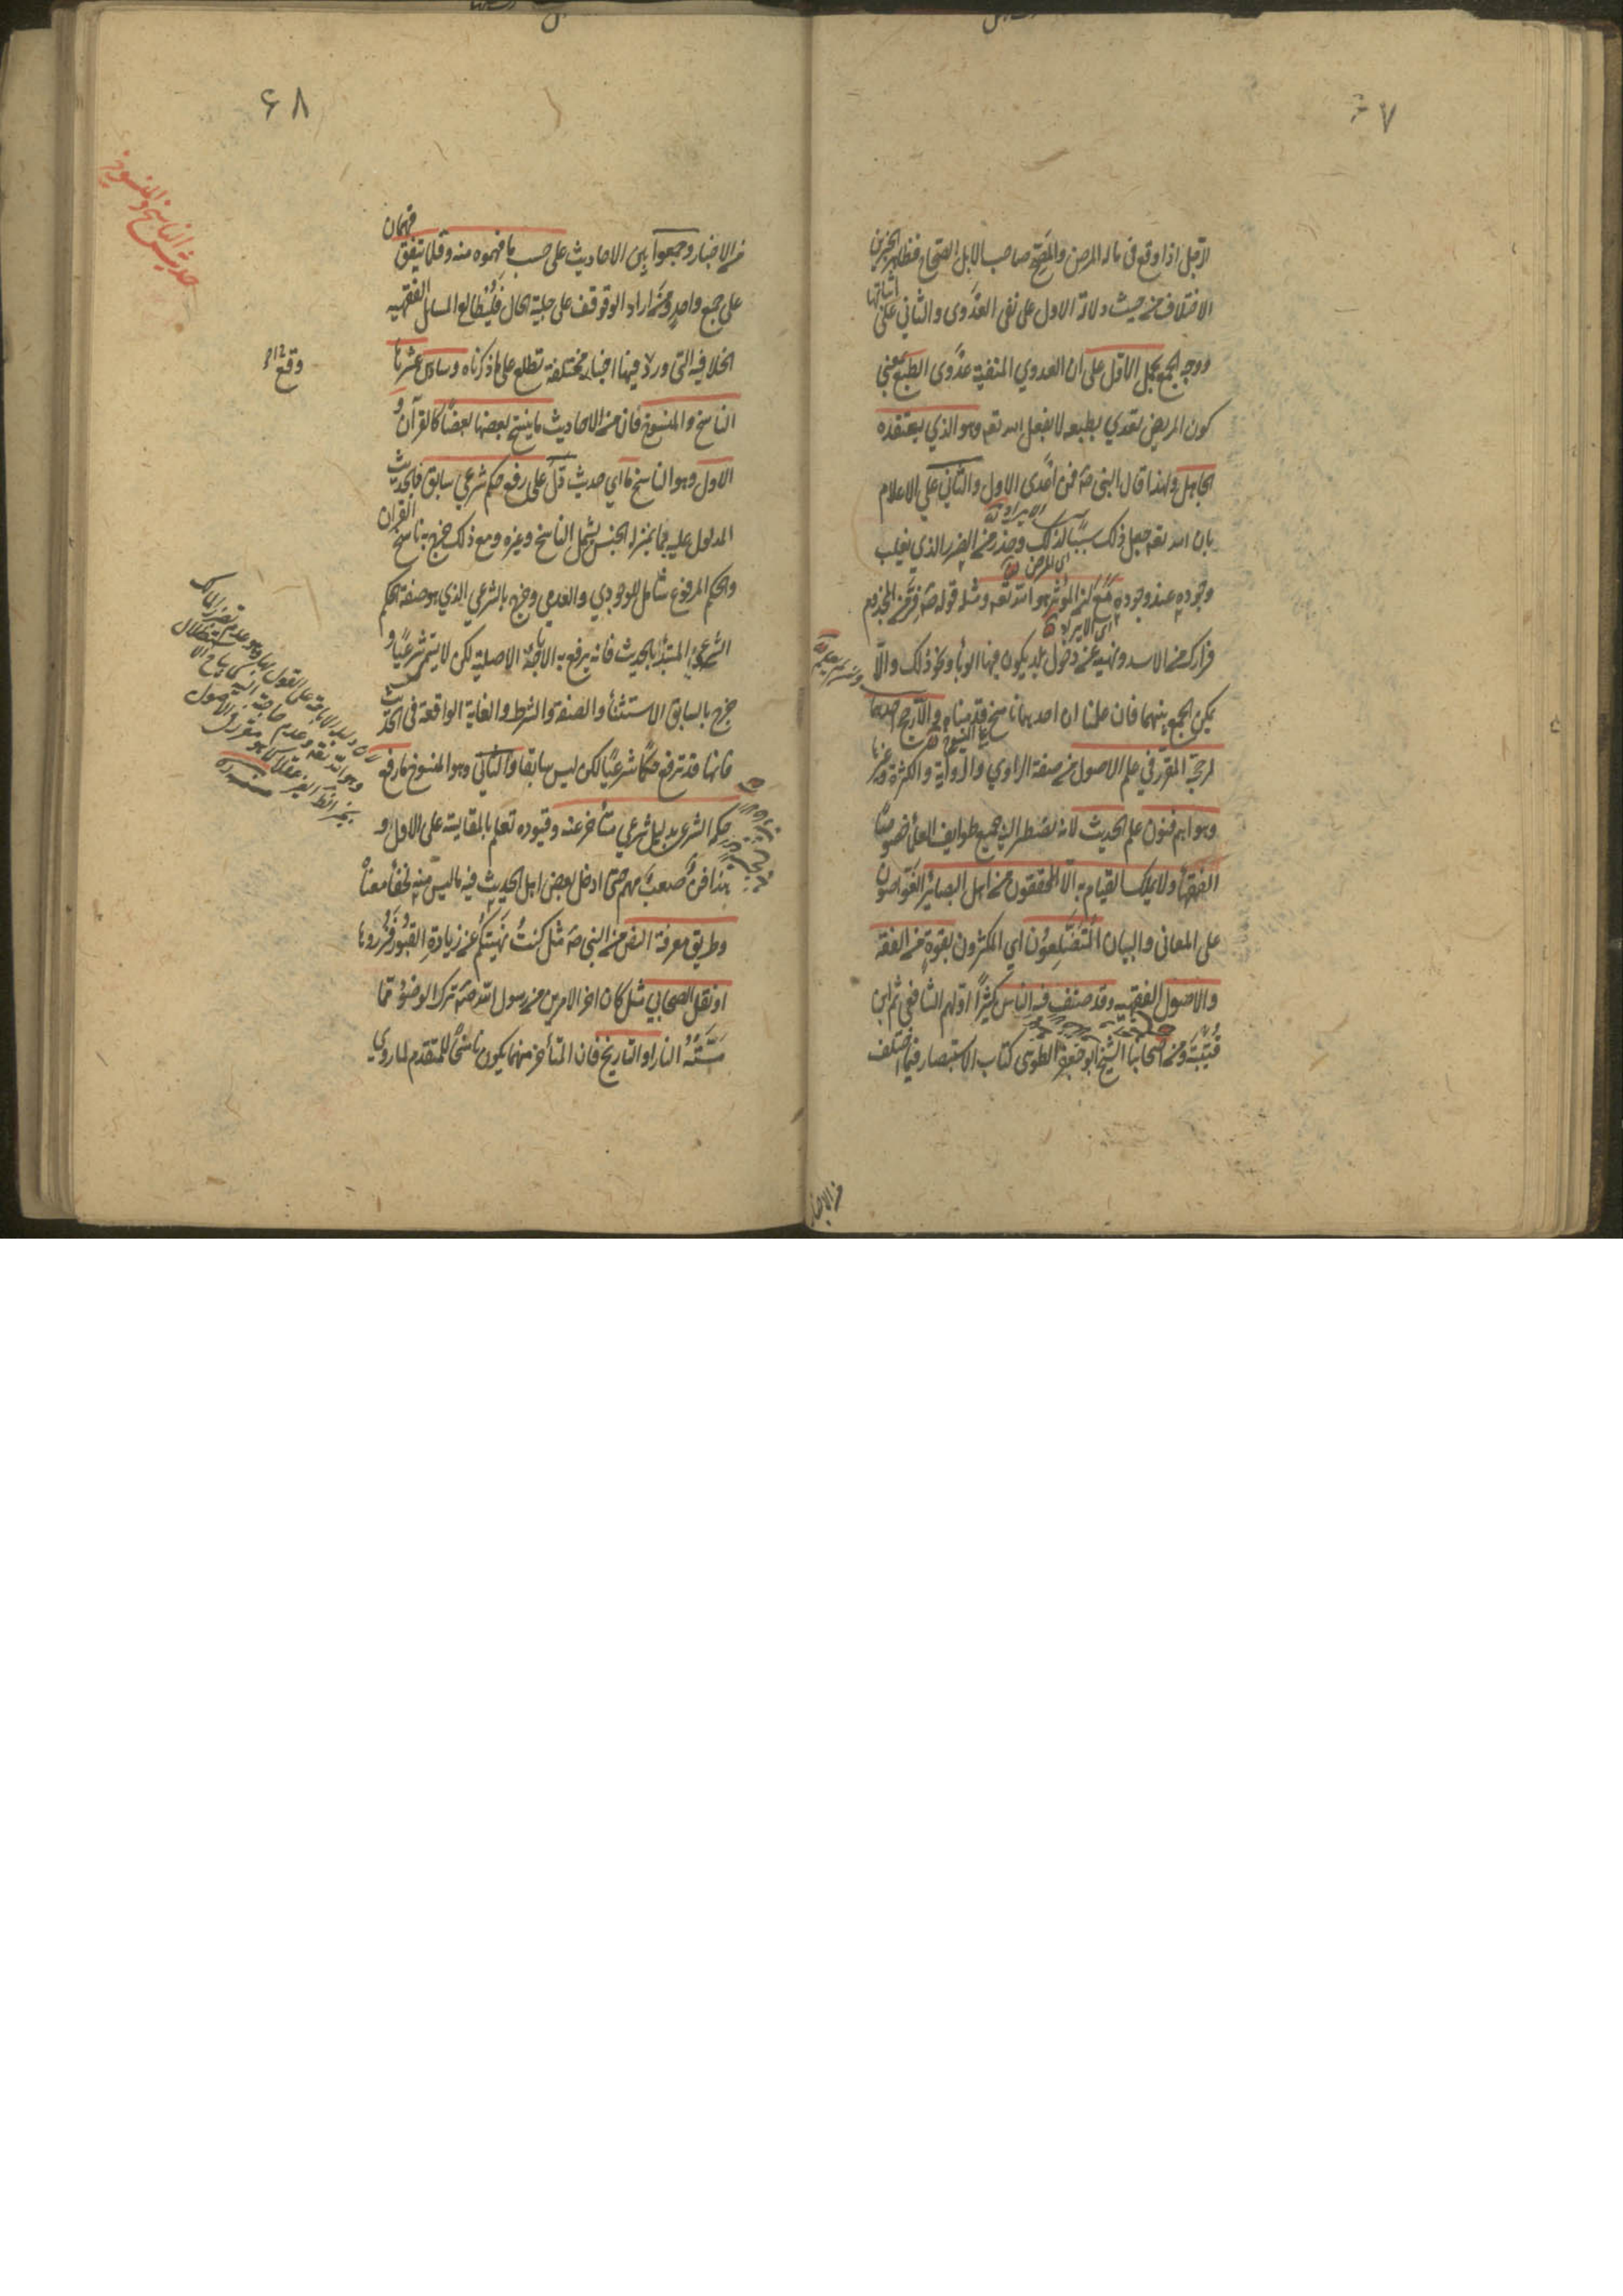 ۶۷
الابل اذا وقع فی ماله المرض والمصح صاحب الابل الصحاح فظاهر الخبرین
الاختلاف من حیث دلالة الاول علی نفی العدوی والثانی علی اثباتها
ووجه الجمع بحمل الاول علی ان العدوی المنفیة عدوی الطبع بمعنی
کون المریض تعدی بطبعه لا بفعل الله تعه وهو الذی یعتقده
الجاهل ولهذا قال النبی صه فمن اعدی الاول والثانی علی الاعلام
بان الله تعه جعل ذلک سببا لذلک وحذر من الضرر الذی یغلب
وجوده عند وجوده مع ان المؤثر هو الله تعه ومثله قوله صه فر من المجذوم
فرارک من الاسد ونهیه عن دخول بلد یکون فیها الوبأ ونحو ذلک والّا
یمکن الجمع بینهما فان علمنا ان احدهما ناسخ قدمناه والّا رجح احدهما
لمرجحه المقرر فی علم الاصول من صفة الراوی والروایة والکثرة وغیرها
وهو اهم فنون علم الحدیث لانه یضطر الیه جمیع طوایف العلمأ خصوصا
الفقهأ ولا یملک القیام به الّا المحققون من اهل البصائر الغواصون
علی المعانی والبیان المتضلعون ای المکثرون بقوة من الفقه
والاصول الفقهیه وقد صنف فیه الناس کثیرًا اولهم الشافعی ثم ابن
قتیبة ومن اصحابنا الشیخ ابو جعفر الطوسی کتاب الاستبصار فیما اختلف
من الاخبار
۶۸
حدیث الناسخ والمنسوخ
من الاخبار وجمعوا بین الاحادیث علی حسب ما فهموه منه وقلما یتفق فهمان
علی جمع واحد ومن اراد الوقوف علی جلیة الحال فلیطالع المسایل الفقهیه
الخلافیه التی ورد فیها اخبار مختلفة تطلع علی ما ذکرناه وسادس عشرها
الناسخ والمنسوخ فان من الاحادیث ما ینسخ بعضها بعضًا کالقرآن و
الاول وهو الناسخ ما ای حدیث دلّ علی رفع حکم شرعی سابق فالحدیث
المدلول علیه بما بمنزلة الجنس یشمل الناسخ وغیره ومع ذلک خرج به ناسخ القرآن
والحکم المرفوع شامل للوجودی والعدمی وخرج بالشرعی الذی هو صفة الحکم
الشرعی المبتدأ بالحدیث فانه یرفع به الاباحة الاصلیة لکن لا یسمی شرعیًا و
خرج بالسابق الاستثنأ والصفة والشرط والغایة الواقعة فی الحدیث
فانها قد ترفع حکمًا شرعیًا لکن لیس سابقا والثانی وهو المنسوخ ما رفع
حکمه الشرعی بدلیل شرعی متأخر عنه وقیوده تعلم بالمقایسة علی الاول و
هذا فنّ صعبٌ مهم حتی ادخل بعض اهل الحدیث فیه ما لیس منه لخفأ معناه
وطریق معرفة النص من النبی صه مثل کنتُ نهیتکم عن زیارة القبور فزوروها
او نقل الصحابی مثل کان اخر الامرین من رسول الله صه ترک الوضوء مما
مسته النار او التاریخ فان المتأخر منهما یکون ناسخًا للمتقدم لما روی